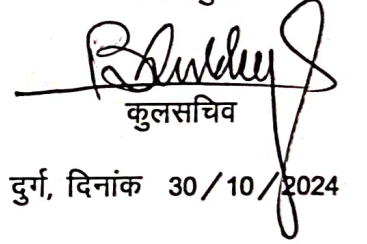 कुलसचिव
दुर्ग, दिनांक 30/10/2024